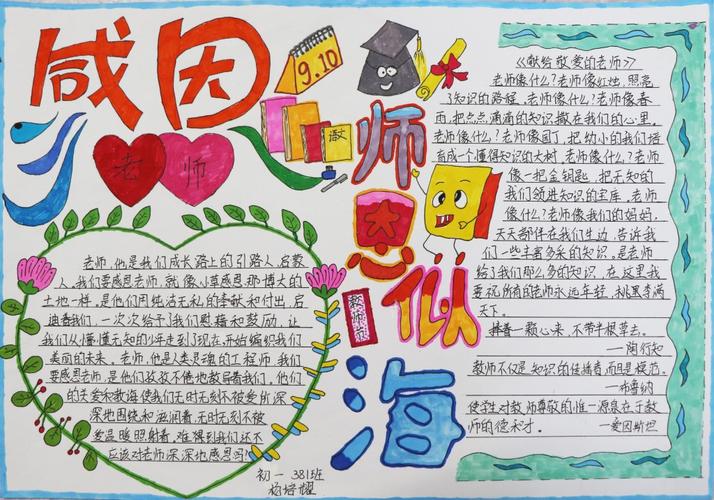 感因
9.10
老师
语
师恩似海
教师节
老师，他是我们成长路上的引路人，启蒙
人，我们要感恩老师，就像小草感恩那博大的
土地一样，是他们用纯洁无私的奉献和付出，启
迪着我们，一次次给予了我们慰藉和鼓励，让
我们从懵懂无知的少年走到了现在，开始编织我们
美丽的未来。老师，他是人类灵魂的工程师，我们
要感恩老师，是他们孜孜不倦地教导着我们，他们
的关爱和教诲使我们无时无刻不被爱所深
深地围绕和滋润着，无时无刻不被
爱温暖照射着，难得到我们还不
应该对老师深深地感恩吗？
初一381班
杨培耀
《献给敬爱的老师》
老师像什么？老师像红烛，照亮
了知识的路程，老师像什么？老师像春
雨，把点点滴滴的知识撒在我们的心里。
老师像什么？老师像园丁，把幼小的我们培
育成一个懂得知识的大树，老师像什么？老师
像一把金钥匙，把无知的
我们领进知识的宝库，老师
像什么？老师像我们的妈妈，
天天都伴在我们生边，告诉我
们一些丰富多余的知识。是老师
给了我们那么多的知识，在这里我
要祝所有的老师永远年轻，桃黑李满
天下。
捧着一颗心来，不带半根草去。
—陶行知
教师不仅是知识的传播者，而且是模范。
—布鲁纳
使学生对教师尊敬的惟一源泉在于教
师的德和才。—爱因斯坦